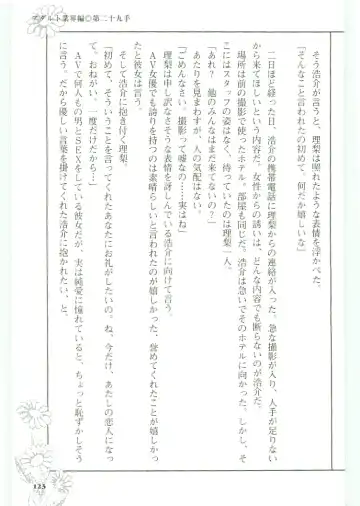 アダルト業界編◎第二十九手
そう浩介が言うと、理梨は照れたような表情を浮かべた。
「そんなこと言われたの初めて、何だか嬉しいな」
二日ほど経った日、浩介の携帯電話に理梨からの連絡が入った。急な撮影が入り、人手が足りない
から来てほしいという内容だ。女性からの誘いは、どんな内容でも断らないのが浩介だ。
場所は前の撮影で使ったホテル。部屋も同じだ。浩介は急いでそのホテルに向かった。しかし、そ
こにはスタッフの姿はなく、待っていたのは理梨一人。
「あれ？　他のみんなはまだ来てないの？」
あたりを見まわすが、人の気配はない。
「ごめんなさい。撮影って嘘なの……実はね」
理梨は申し訳なさそうな表情を訝しんでいる浩介に向けて言う。
AV女優でも誇りを持つのは素晴らしいと言われたのが嬉しかった、誉めてくれたことが嬉しかっ
たと彼女は言う。
そして浩介に抱き付く理梨。
「初めて、そういうことを言ってくれたあなたにお礼がしたいの。ね、今だけ、あたしの恋人になっ
て。おねがい。一度だけだから…」
AVで何人もの男とSEXをしている彼女だが、実は純愛に憧れていると、ちょっと恥ずかしそう
に言う。だから優しい言葉を掛けてくれた浩介に抱かれたい、と。
123